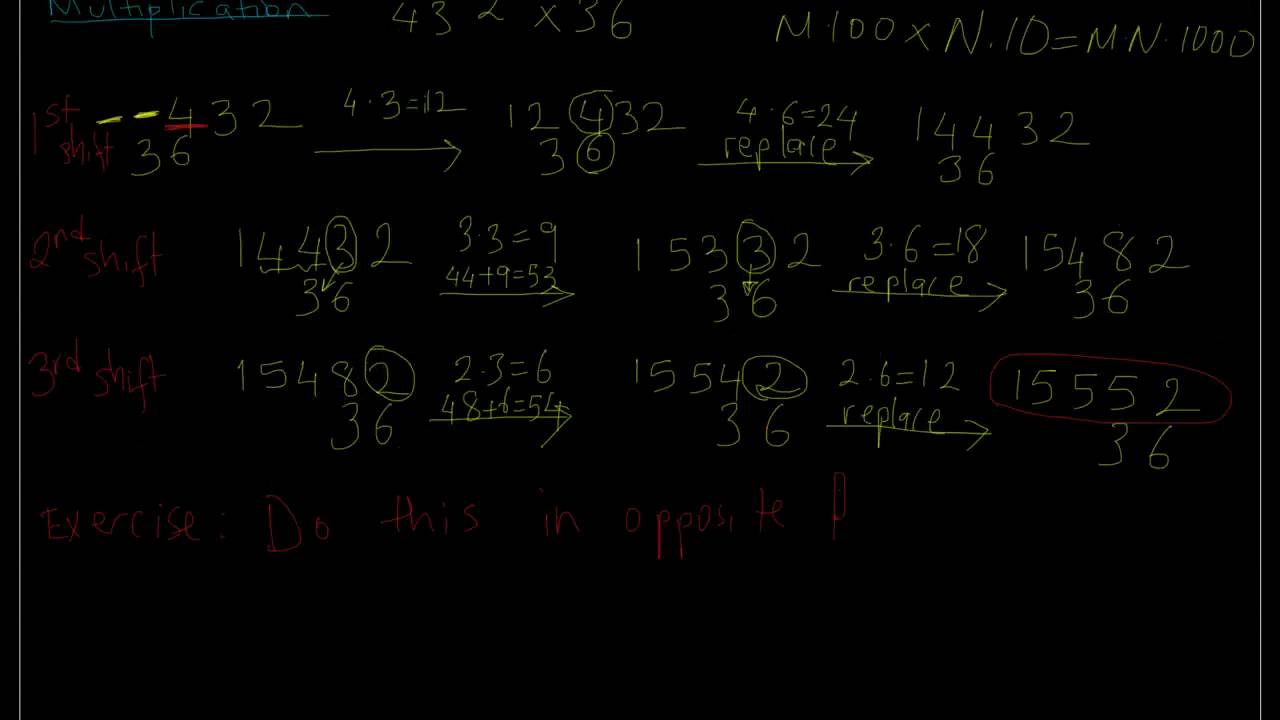 Multiplication 432 x 36 M.100 x N.10 = M.N.1000
1st shift 432 4.3=12 12432 4.6=24 14432
36 36 replace 36
2nd shift 14432 3.3=9 15332 3.6=18 15482
36 44+9=53 36 replace 36
3rd shift 15482 2.3=6 15542 2.6=12 15552
36 48+6=54 36 replace 36
Exercise: Do this in opposite